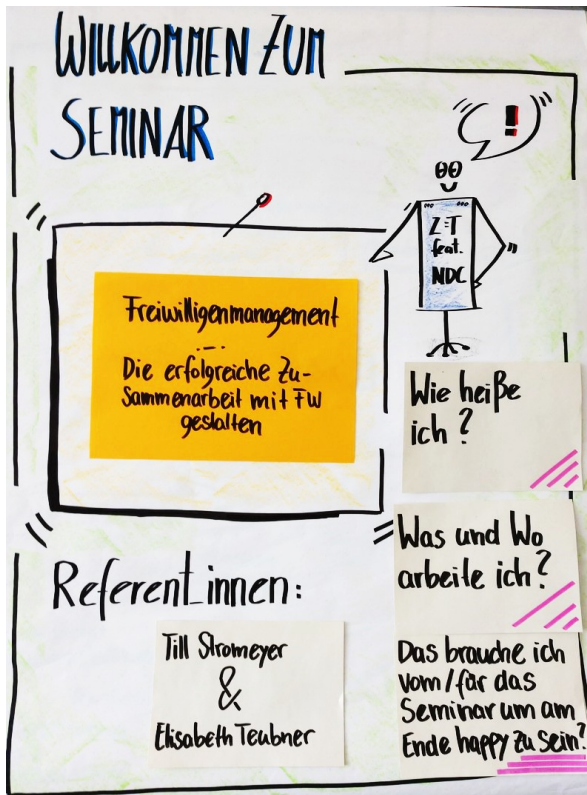 WILLKOMMEN ZUM
SEMINAR
!
Z=T
feat.
NDC
Freiwilligenmanagement
Die erfolgreiche Zu-
sammenarbeit mit FW
gestalten
Wie heiße
ich?
Was und Wo
arbeite ich?
Das brauche ich
vom/für das
Seminar um am
Ende happy zu sein?
Referent_innen:
Till Stromeyer
&
Elisabeth Teubner